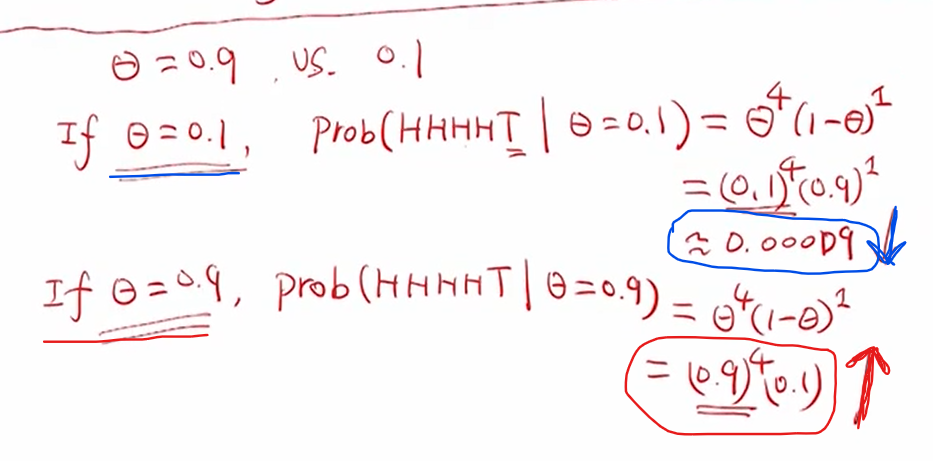 θ = 0.9 vs. 0.1
If θ = 0.1, Prob(HHHHT | θ = 0.1) = θ⁴(1-θ)¹
= (0.1)⁴(0.9)¹
≈ 0.00009
If θ = 0.9, prob(HHHHT | θ = 0.9) = θ⁴(1-θ)¹
= (0.9)⁴(0.1)